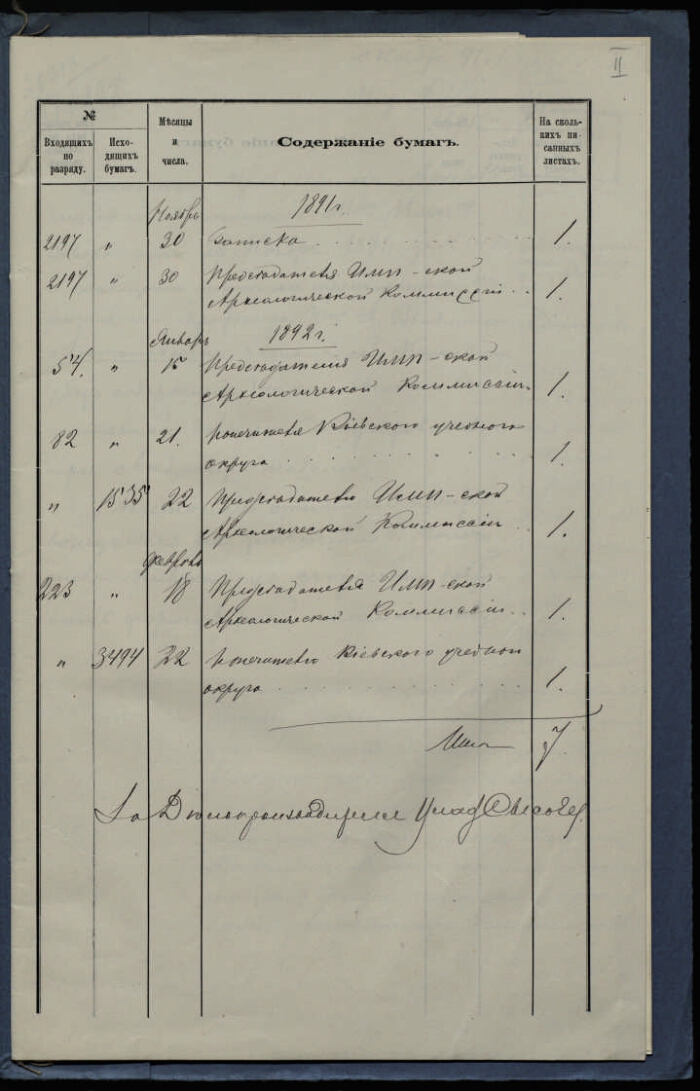 II
№
Входящихъ по разряду.
Исходящихъ бумагъ.
Мѣсяцы и числа.
Содержаніе бумагъ.
На сколькихъ писанныхъ листахъ.
Ноябрь 1891 г.
2197 " 30 Записка 1.
2197 " 30 Предсѣдателя Имп-ской
Археологической Коммиссіи 1.
Январь 1892 г.
54. " 15 Предсѣдателя Имп-ской
Археологической Коммиссіи 1.
82 " 21. Попечителя Кіевского учебного
округа 1.
" 1535 22 Предсѣдателю Имп-ской
Археологической Коммиссіи 1.
Февраль
223 " 18 Предсѣдателя Имп-ской
Археологической Коммиссіи 1.
" 3494 22 Попечителю Кіевского учебного
округа 1.
Итого 7.
За Дѣлопроизводителя